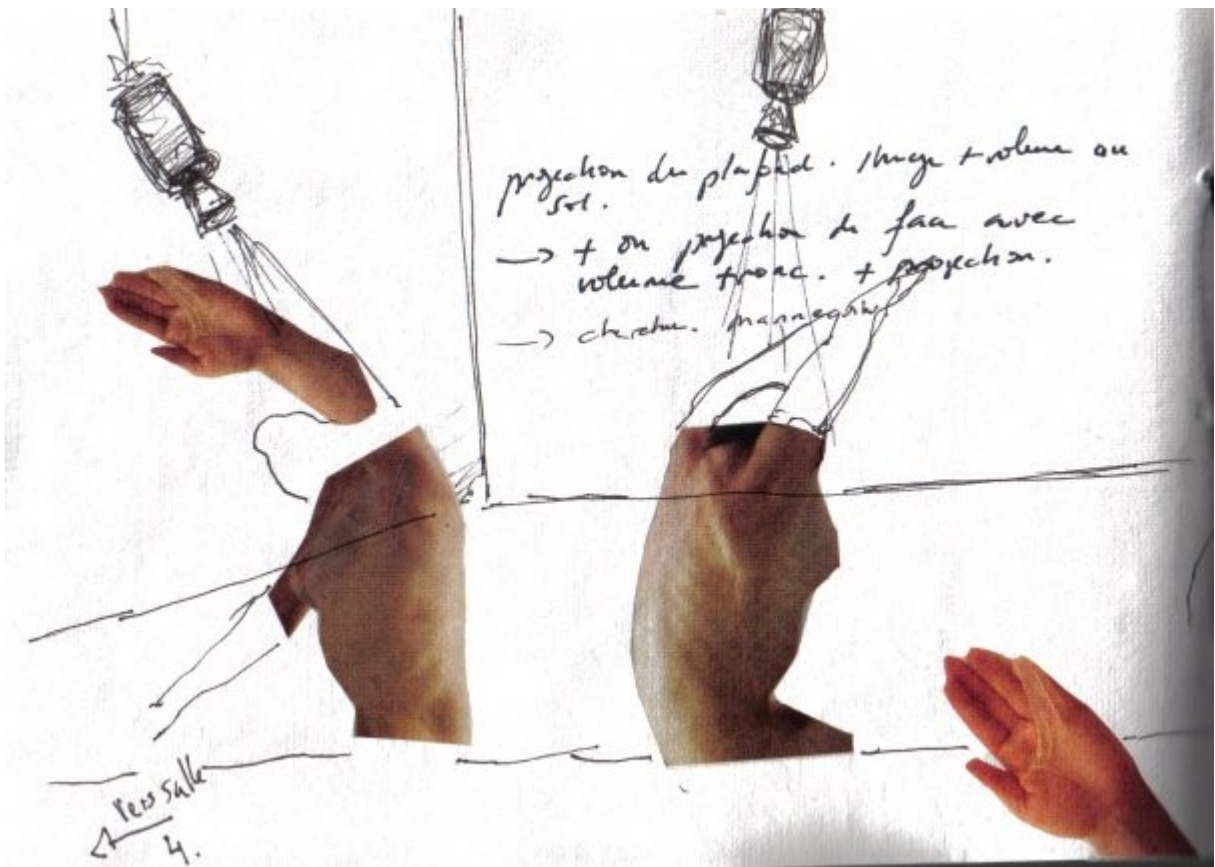 projection du plafond. Image + volume au
sol.
→ + ou projection de face avec
volume tronc. + projection.
→ chercher. mannequins
vers salle
4.